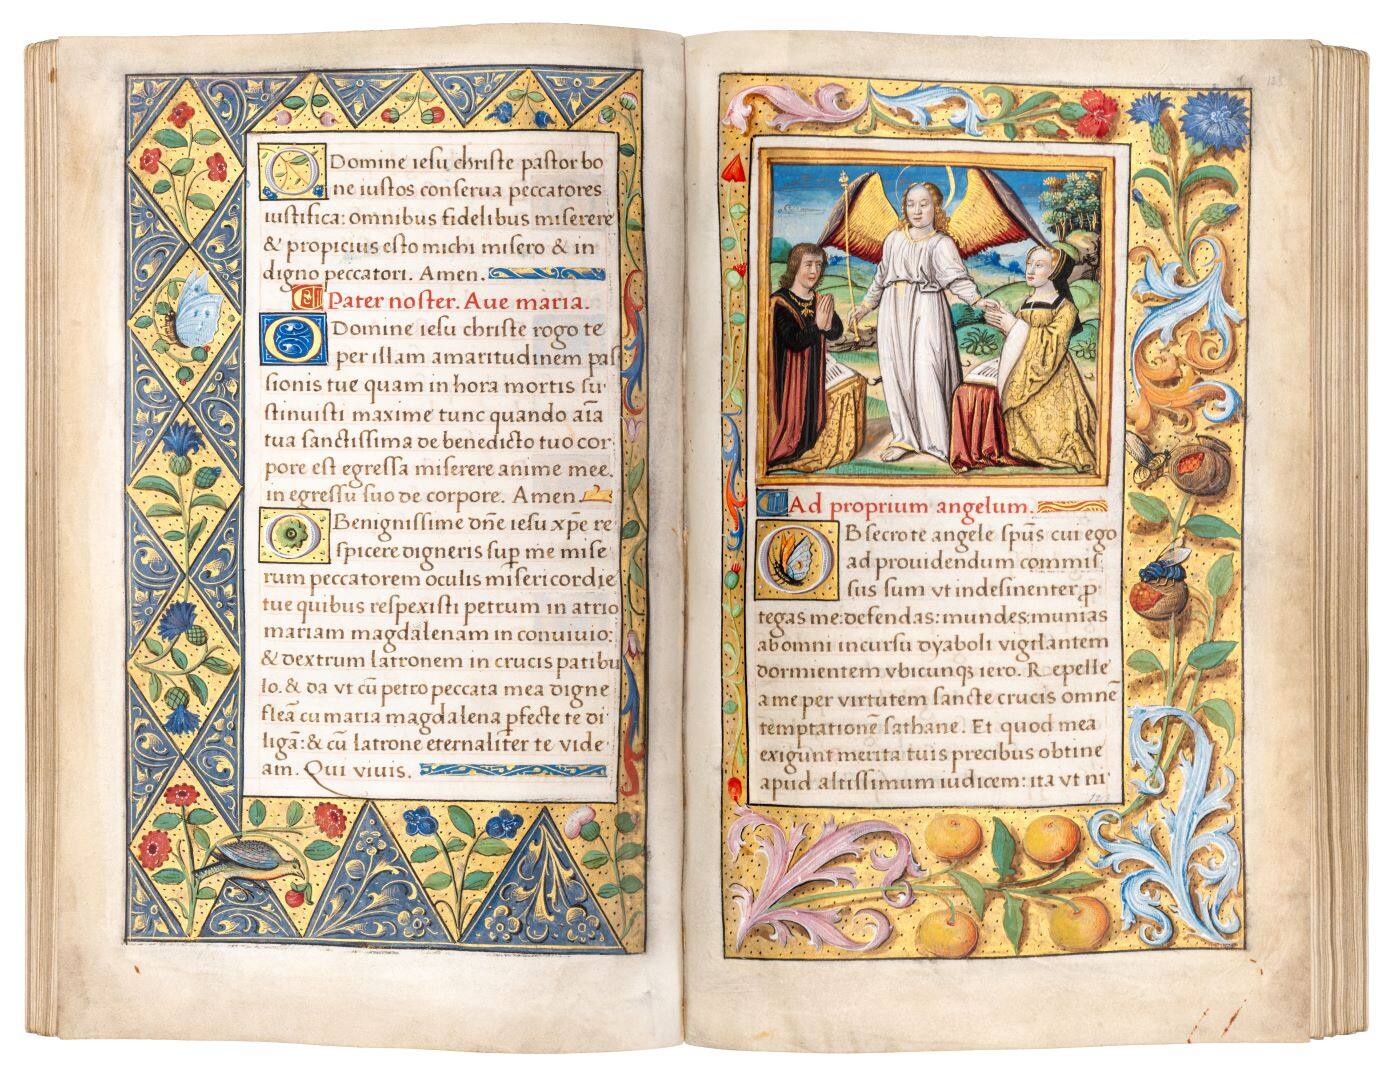 O Domine iesu christe pastor bo
ne iustos conserua peccatores
iustifica: omnibus fidelibus miserere
& propicius esto michi misero & in
digno peccatori. Amen.
Pater noster. Aue maria.
O Domine iesu christe rogo te
per illam amaritudinem pas
sionis tue quam in hora mortis su
stinuisti maxime tunc quando aīa
tua sanctissima de benedicto tuo cor
pore est egressa miserere anime mee.
in egressu suo de corpore. Amen
O Benignissime dn̄e iesu xp̄e re
spicere digneris sup me mise
rum peccatorem oculis misericordie
tue quibus respexisti petrum in atrio
mariam magdalenam in conuiuio:
& dextrum latronem in crucis patibu
lo. & da vt cū petro peccata mea digne
fleā cū maria magdalena pfecte te di
ligā: & cū latrone eternaliter te vide
am. Qui viuis.
Ad proprium angelum.
OBsecro te angele sp̄us cui ego
ad prouidendum commis
sus sum vt indesinenter p
tegas me: defendas: mundes: munias
ab omni incursu dyaboli vigilantem
dormientem vbicunq iero. Repelle
a me per virtutem sancte crucis omnē
temptationē sathane. Et quod mea
exigunt merita tuis precibus obtine
apud altissimum iudicem: ita vt ni
123